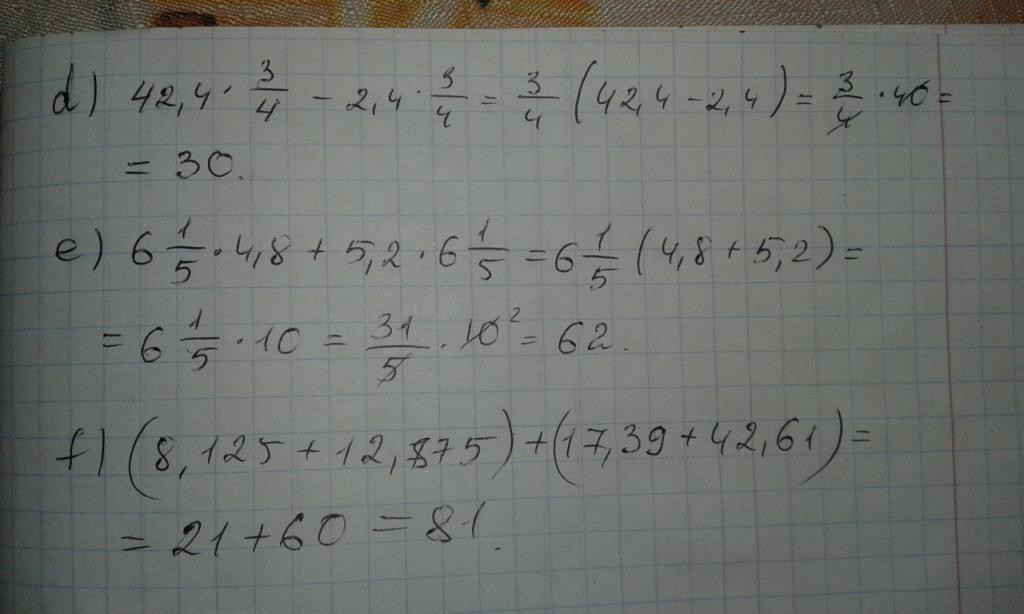 d) 42,4 · 3/4 - 2,4 · 3/4 = 3/4 (42,4 - 2,4) = 3/4 · 40 =
= 30.
e) 6 1/5 · 4,8 + 5,2 · 6 1/5 = 6 1/5 (4,8 + 5,2) =
= 6 1/5 · 10 = 31/5 · 10 ² = 62.
f) (8,125 + 12,875) + (17,39 + 42,61) =
= 21 + 60 = 81.